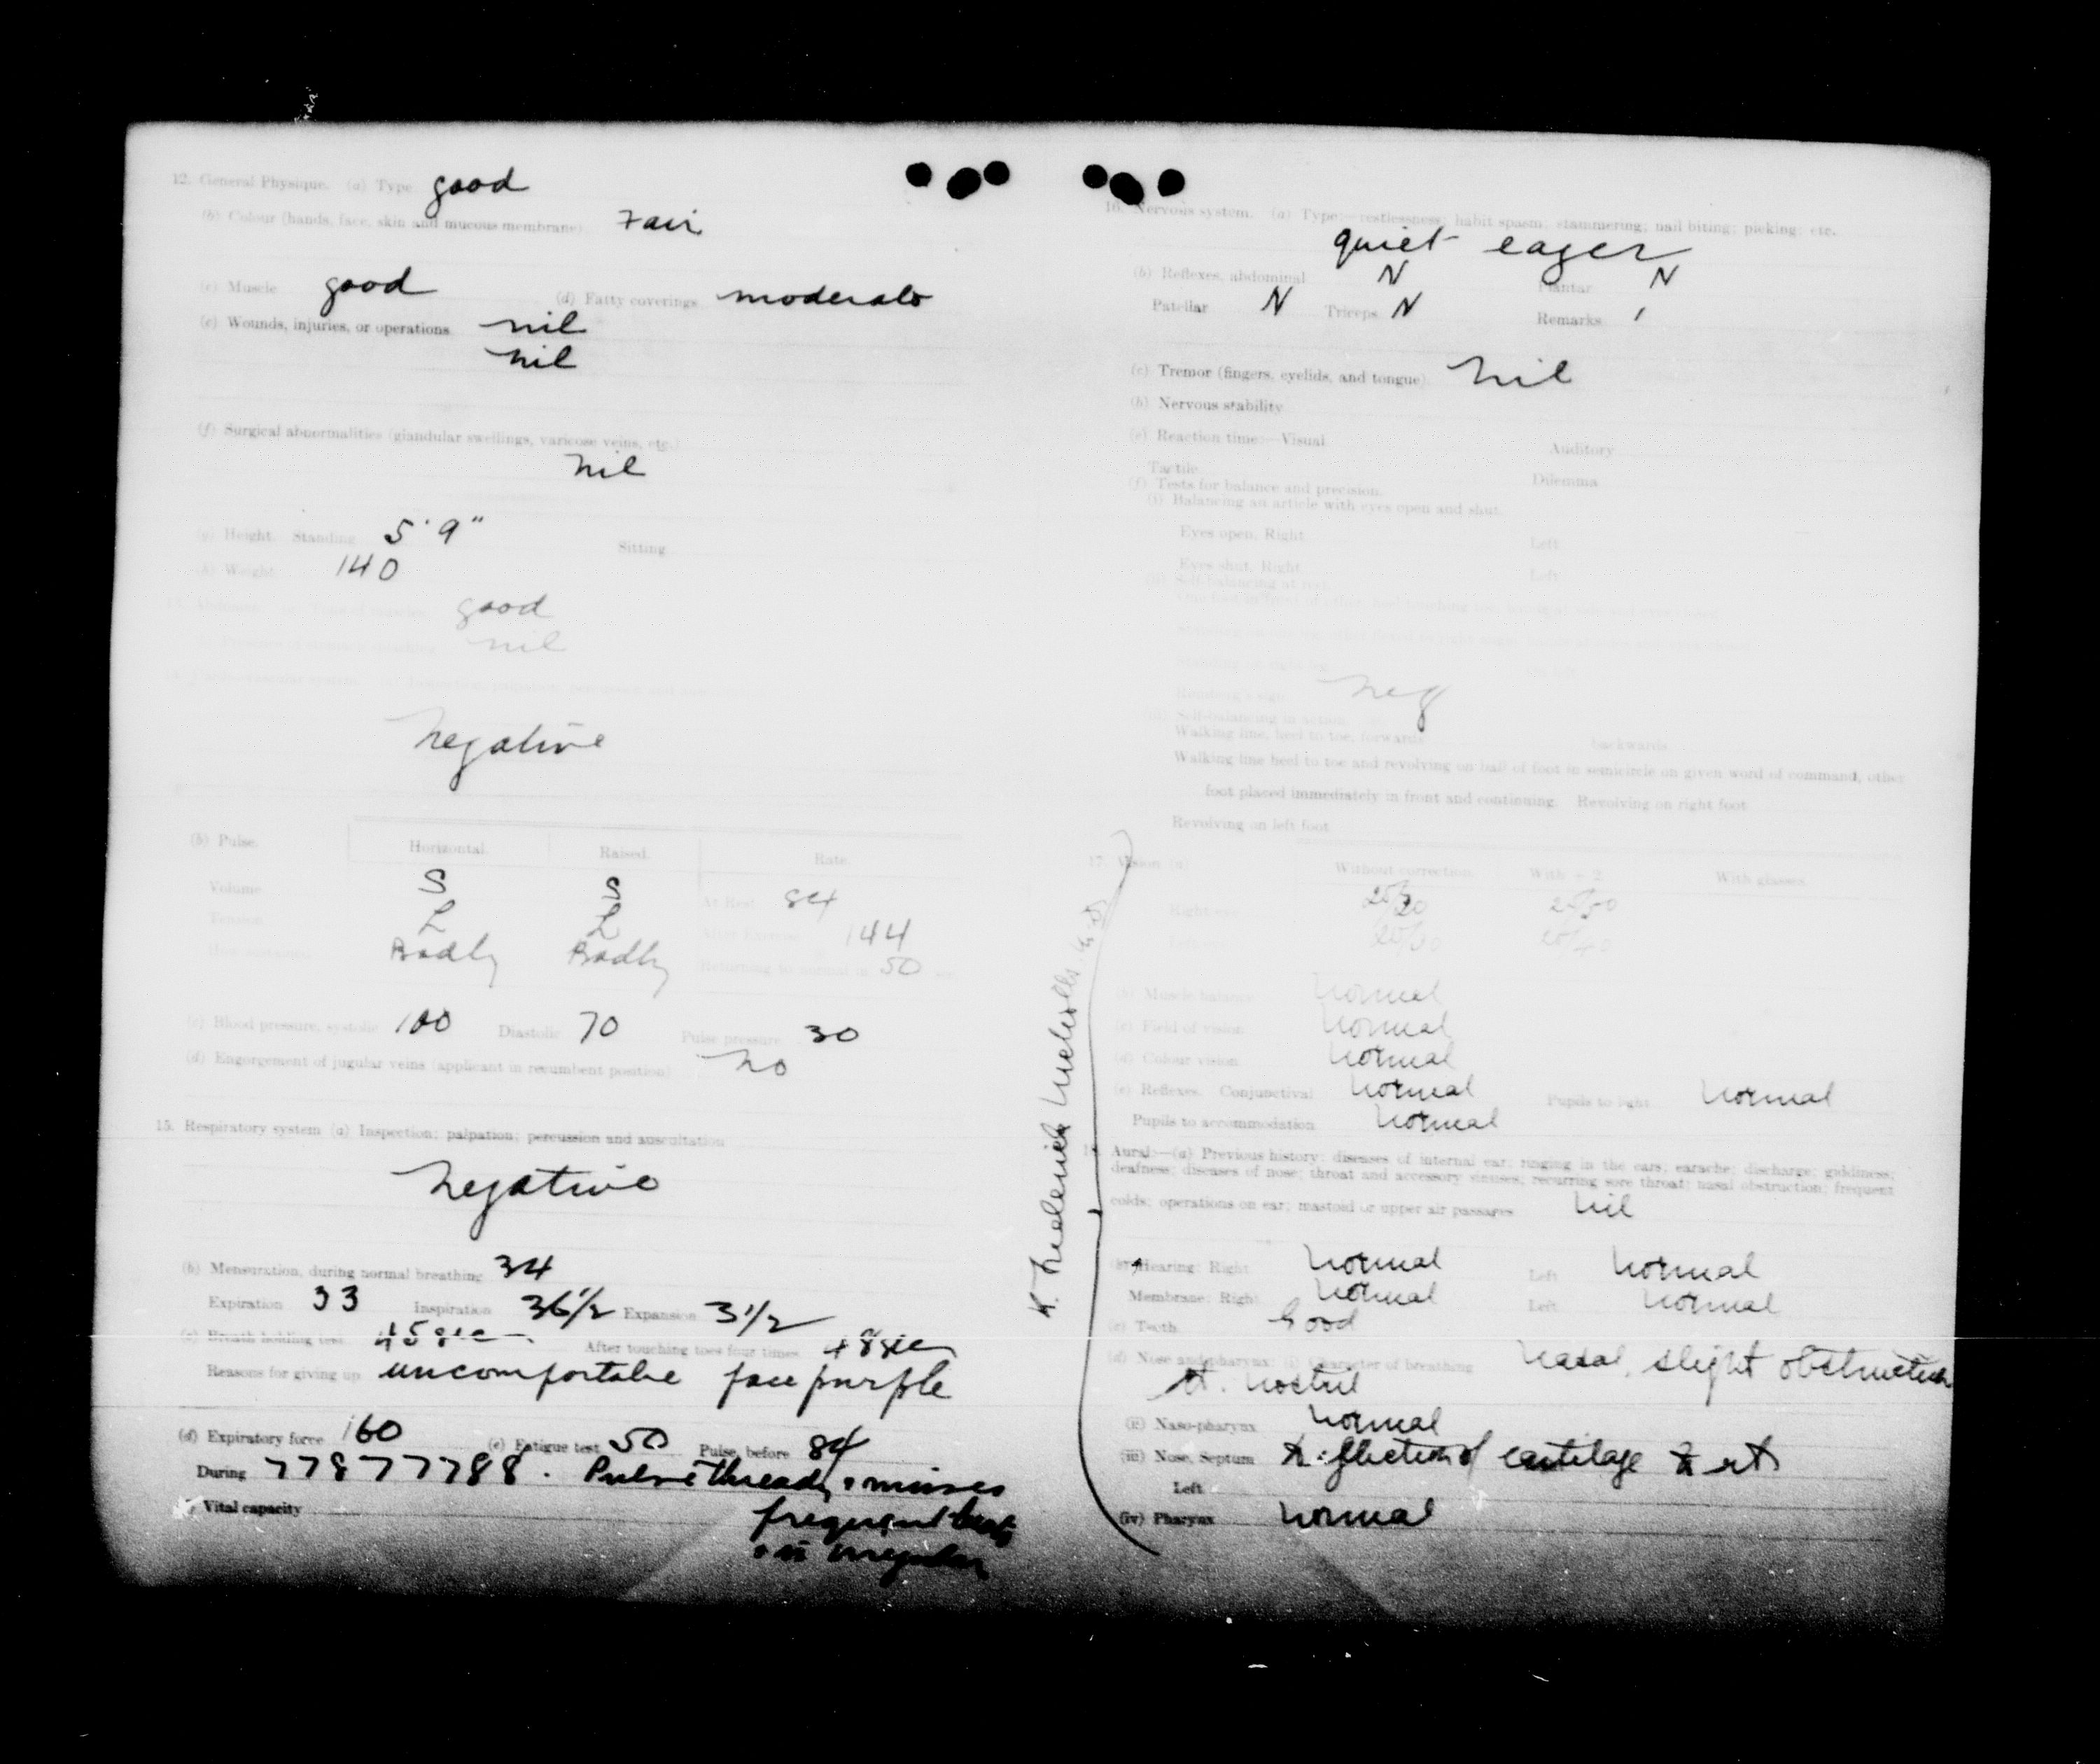 12. General Physique. (a) Type good
(b) Colour (hands, face, skin and mucous membrane) Fair
(c) Muscle good (d) Fatty coverings moderate
(e) Wounds, injuries, or operations nil
nil
(f) Surgical abnormalities (glandular swellings, varicose veins, etc.)
nil
(g) Height. Standing 5' 9" Sitting
(h) Weight 140
good
nil
negative
(b) Pulse. Horizontal. Raised. Rate.
Volume S S At Rest 84
Tension L L After Exercise 144
Badly Badly Returning to normal in 50 sec.
(c) Blood pressure, systolic 100 Diastolic 70 Pulse pressure 30
(d) Engorgement of jugular veins (applicant in recumbent position) no
15. Respiratory system (a) Inspection; palpation; percussion and auscultation
negative
(b) Mensuration, during normal breathing 34
Expiration 33 Inspiration 36 1/2 Expansion 3 1/2
(c) Breath holding test 45 sec After touching toes four times 48 sec
Reasons for giving up uncomfortable face purple
(d) Expiratory force 160 (e) Fatigue test 50 Pulse, before 84
During 77877788. Pulse thready misses
Vital capacity frequent beats
irregular
K. Frederick
16. Nervous system. (a) Type:—restlessness; habit spasm; stammering; nail biting; picking; etc.
quiet eager
(b) Reflexes, abdominal N Plantar N
Patellar N Triceps N Remarks
(c) Tremor (fingers, eyelids, and tongue) nil
(b) Nervous stability
(e) Reaction time:—Visual Auditory
Tactile Dilemma
(f) Tests for balance and precision.
(i) Balancing an article with eyes open and shut.
Eyes open, Right Left
Eyes shut, Right Left
(ii) Self-balancing at rest.
Romberg's sign neg
(iii) Self-balancing in action.
Walking line, heel to toe, forwards backwards
Walking line heel to toe and revolving on ball of foot in semicircle on given word of command, other
foot placed immediately in front and continuing. Revolving on right foot
Revolving on left foot
17. Vision (a) Without correction. With + 2. With glasses.
Right eye 20/20 20/50
Left eye 20/20 20/40
(b) Muscle balance normal
(c) Field of vision normal
(d) Colour vision normal
(e) Reflexes. Conjunctival normal Pupils to light normal
Pupils to accommodation normal
Aural:—(a) Previous history: diseases of internal ear; ringing in the ears; earache; discharge; giddiness;
deafness; diseases of nose; throat and accessory sinuses; recurring sore throat; nasal obstruction; frequent
colds; operations on ear; mastoid or upper air passages nil
(b) Hearing: Right normal Left normal
Membrane: Right normal Left normal
(c) Teeth Good
(d) Nose and pharynx: (i) Character of breathing nasal, slight obstruction
rt. nostril
(ii) Naso-pharynx normal
(iii) Nose, Septum deflection of cartilage to rt
Left
(iv) Pharynx normal